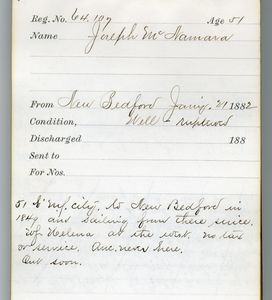 Reg. No. 64.107 Age 51
Name Joseph McNamara
From New Bedford Jan'y. 21 1882
Condition, Well - ruptured
Discharged 188
Sent to
For Nos.
51 city, to New Bedford in
1849 and sailing from there since.
Wf Helena at the west. No tax
or service. Anc. never here.
Out soon.